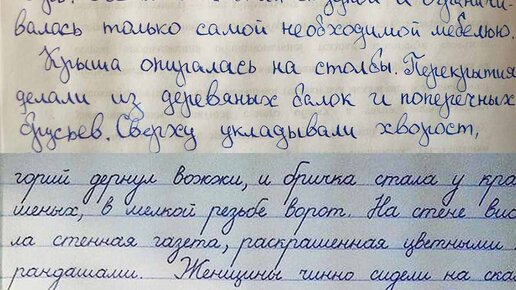 валась только самой необходимой мебелью.
Крыша опиралась на столбы. Перекрытия
делали из деревяных балок и поперечных
брусьев. Сверху укладывали хворост,
горий дернул вожжи, и бричка стала у кра
шеных, в мелкой резьбе ворот. На стене вис
ла стенная газета, раскрашенная цветными
рандашами. Женщины чинно сидели на ска